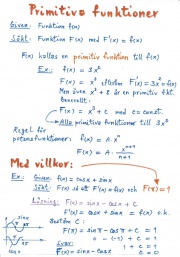 Primitiva funktioner
Given: Funktion f(x)
Sökt: Funktion F(x) med F'(x) = f(x)
F(x) kallas en primitiv funktion till f(x)
Ex.: f(x) = 3x²
F(x) = x³, eftersom F'(x) = 3x² = f(x)
Men även x³ + 8 är en primitiv fkt.
Generellt:
F(x) = x³ + C med C = const.
Alla primitiva funktioner till 3x²
Regel för
potensfunktioner: f(x) = A·xⁿ
F(x) = A · xⁿ⁺¹/(n+1)
Med villkor:
Ex.: Given: f(x) = cosx + sinx
Sökt: F(x) så att F'(x) = f(x) och F(π) = 1
Lösning: F(x) = sinx - cosx + C
F'(x) = cosx + sinx = f(x) o.k.
Bestäm C:
F(π) = sinπ - cosπ + C = 1
0 - (-1) + C = 1
C = 0
Svar: